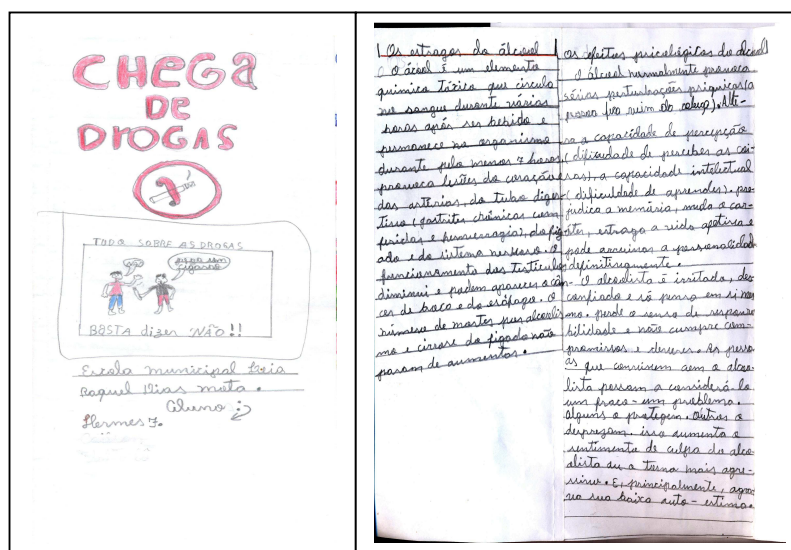 CHEGA
DE
DROGAS
TUDO SOBRE AS DROGAS
BASTA dizer NÃO!!
Escola municipal Lívia
Raquel Dias mota.
Aluno:
Hermes F.
Os estragos do álcool
O ácool é um elemento
químico tóxico que circula
no sangue durante várias
horas após ser bebido e
permanece no organismo
durante pelo menos 7 horas,
provoca lesões do coração e
das artérias, do tubo diges-
tivo (gastrites crônicas com
feridas e hemorragia), do fíg-
ado e do sistema nervoso. O
funcionamento dos testículos
diminui e podem aparecer o cân-
cer de boca e do esôfago. O
número de mortes por alcoolis-
mo e cirrose do fígado não
param de aumentar.
Os efeitos psicológicos do álcool
O álcool normalmente provoca
sérias perturbações psíquicas (a
pessoa fica ruim da cabeça). Alte-
ra a capacidade de percepção
(dificuldade de perceber as coi-
sas), a capacidade intelectual
(dificuldade de aprender), pre-
judica a memória, muda o car-
áter, estraga a vida afetiva e
pode arruinar a personalidade
definitivamente.
O alcoolista é irritado, des-
confiado e só pensa em si mes-
mo. perde o senso de responsa-
bilidade e não cumpre com-
promissos e deveres. As pesso-
as que convivem com o alcoo-
lista passam a considerá-lo
um fraco - um problema.
Alguns o protegem. Outros o
desprezam. isso aumenta o
sentimento de culpa do alco-
olista ou o torna mais agre-
ssivo. E, principalmente, agra-
va sua baixa auto-estima.